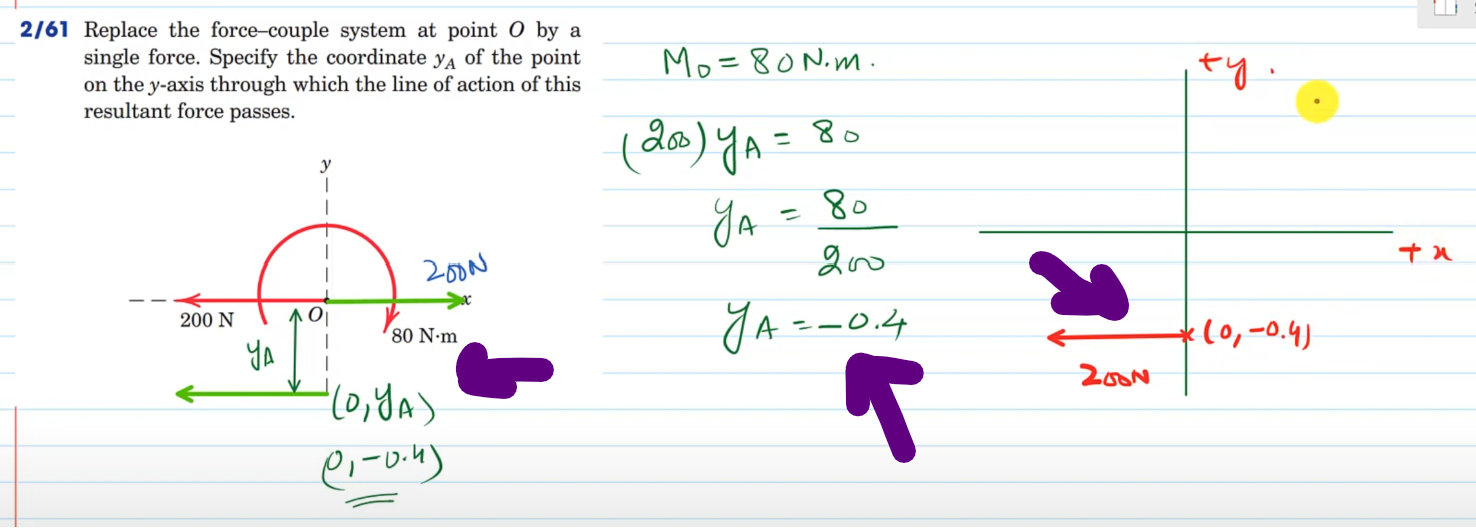 2/61 Replace the force–couple system at point O by a
single force. Specify the coordinate yA of the point
on the y-axis through which the line of action of this
resultant force passes.
y
200N
x
200 N
O
80 N·m
yA
(0, yA)
(0, -0.4)
Mo = 80 N.m.
(200) yA = 80
yA = 80
200
yA = -0.4
+y.
+x
(0, -0.4)
200N